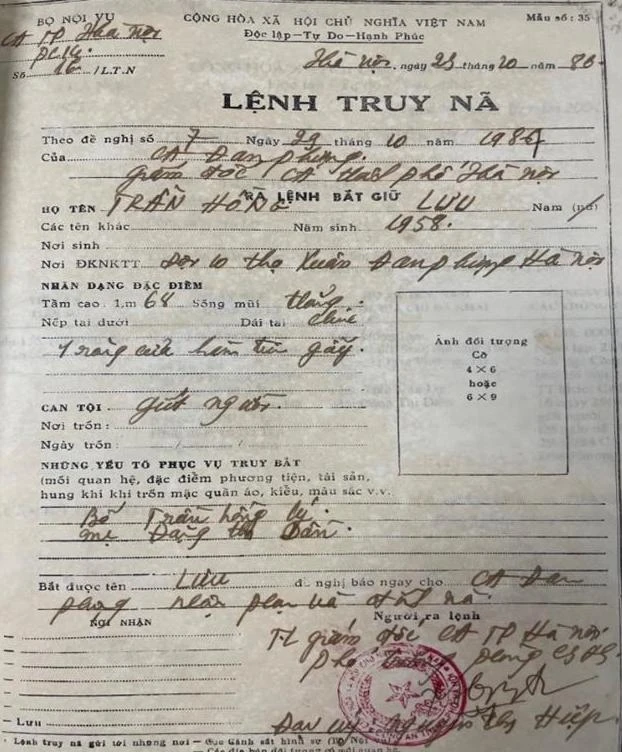 BỘ NỘI VỤ
CỘNG HÒA XÃ HỘI CHỦ NGHĨA VIỆT NAM
Mẫu số: 35
CA TP Hà Nội
Độc lập—Tự Do—Hạnh Phúc
PC14
Số 16 /L.T.N
Hà Nội, ngày 29 tháng 10 năm 86
LỆNH TRUY NÃ
Theo đề nghị số 7 Ngày 29 tháng 10 năm 1986
Của CA Đan phượng
giám đốc CA thành phố Hà Nội
RA LỆNH BẮT GIỮ
HỌ TÊN TRẦN HỒNG LƯU Nam (nữ)
Các tên khác Năm sinh 1958.
Nơi sinh
Nơi ĐKNKTT Đội 10 thọ Xuân Đan phượng Hà Nội
NHÂN DẠNG ĐẶC ĐIỂM
Tầm cao 1,m 68 Sống mũi thẳng.
Nếp tai dưới Dái tai chúc
1 răng cửa hàm trên gãy.
Ảnh đối tượng
Cỡ
4 × 6
hoặc
6 × 9
CAN TỘI giết người.
Nơi trốn:
Ngày trốn: / /
NHỮNG YẾU TỐ PHỤC VỤ TRUY BẮT
(mối quan hệ, đặc điểm phương tiện, tài sản,
hung khí khi trốn mặc quần áo, kiểu, màu sắc v.v.
Bố Trần hồng lý.
mẹ Đặng thị Dần.
Bắt được tên LƯU đề nghị báo ngay cho CA Đan
phượng
NƠI NHẬN
Người ra lệnh
TL giám đốc CA TP Hà Nội
Phó trưởng phòng CSHS
— Lưu
Đại úy Nguyễn thị Hiệp
* Lệnh truy nã gửi tới những nơi — Cục Cảnh sát hình sự (Bộ Nội
— Các địa bàn đối tượng có mối quan hệ.